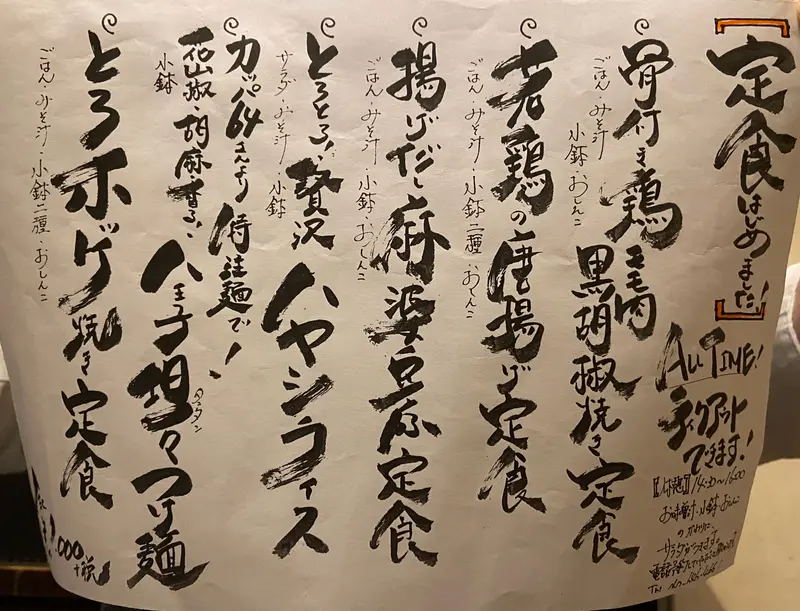 定食はじめました!
ALL TIME!
テイクアウト
できます!
14:00〜16:00
お味噌汁・小鉢・おしんこ
のかわりに
骨付き鶏モモ肉
黒胡椒焼き定食
ごはん・みそ汁
小鉢・おしんこ
若鶏の唐揚げ定食
ごはん・みそ汁・小鉢二種・おしんこ
揚げだし麻婆豆腐定食
ごはん・みそ汁・小鉢・おしんこ
とろとろ!贅沢ハヤシライス
サラダ・みそ汁・小鉢
カッパ64さんより特注麺で!
花山椒・胡麻香る!八王子担々つけ麺
タンタン
小鉢
とろホッケ焼き定食
ごはん・みそ汁・小鉢二種・おしんこ
,000
+税